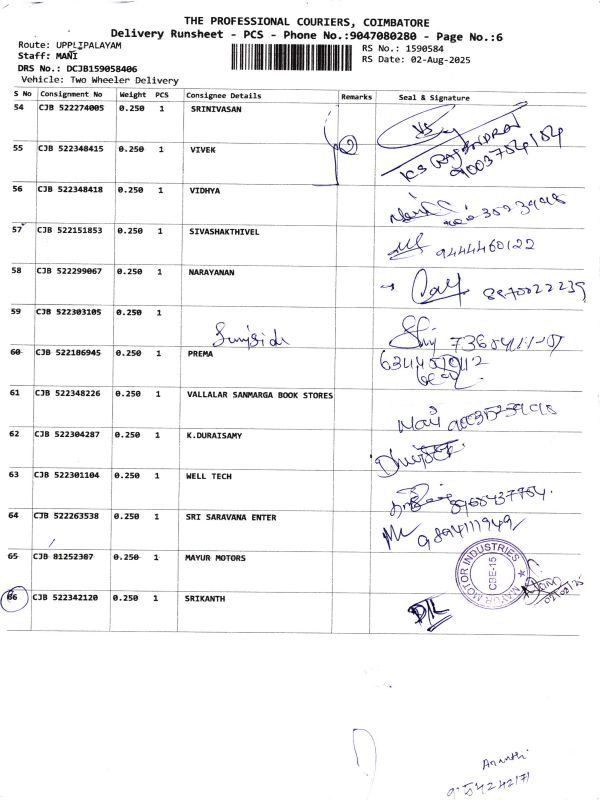 THE PROFESSIONAL COURIERS, COIMBATORE
Delivery Runsheet - PCS - Phone No.:9047080280 - Page No.:6
Route: UPPLIPALAYAM
Staff: MANI
RS No.: 1590584
RS Date: 02-Aug-2025
DRS No.: DCJB159058406
Vehicle: Two Wheeler Delivery
S No Consignment No Weight PCS Consignee Details Remarks Seal & Signature
54 CJB 522274005 0.250 1 SRINIVASAN
VS
KS RAJENDRAN
9003754154
55 CJB 522348415 0.250 1 VIVEK
56 CJB 522348418 0.250 1 VIDHYA
57 CJB 522151853 0.250 1 SIVASHAKTHIVEL
9444460122
58 CJB 522299067 0.250 1 NARAYANAN
8870022239
59 CJB 522303105 0.250 1
60 CJB 522186945 0.250 1 PREMA
61 CJB 522348226 0.250 1 VALLALAR SANMARGA BOOK STORES
Mani
62 CJB 522304287 0.250 1 K.DURAISAMY
63 CJB 522301104 0.250 1 WELL TECH
64 CJB 522263538 0.250 1 SRI SARAVANA ENTER
9894111949
65 CJB 81252387 0.250 1 MAYUR MOTORS
MAYUR MOTOR INDUSTRIES
CBE-15
66 CJB 522342120 0.250 1 SRIKANTH